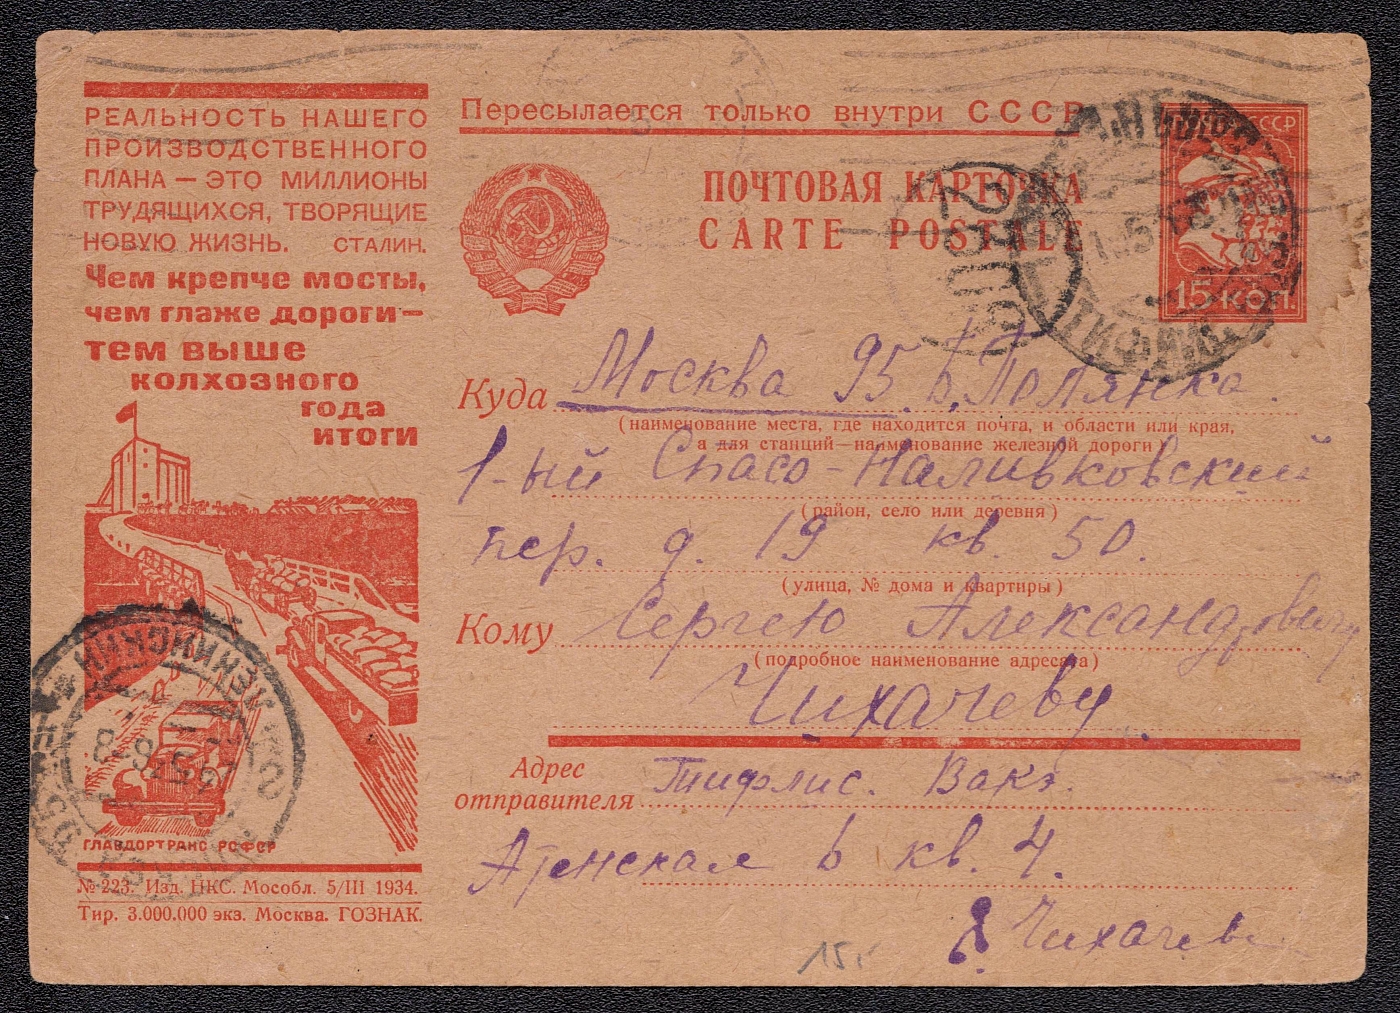 РЕАЛЬНОСТЬ НАШЕГО
ПРОИЗВОДСТВЕННОГО
ПЛАНА — ЭТО МИЛЛИОНЫ
ТРУДЯЩИХСЯ, ТВОРЯЩИЕ
НОВУЮ ЖИЗНЬ. СТАЛИН.
Чем крепче мосты,
чем глаже дороги —
тем выше
колхозного
года
итоги
ГЛАВДОРТРАНС РСФСР
№ 223. Изд. НКС. Мособл. 5/III 1934.
Тир. 3.000.000 экз. Москва. ГОЗНАК.
Пересылается только внутри СССР
ПОЧТОВАЯ КАРТОЧКА
CARTE POSTALE
СССР
15 КОП.
ТИФЛИС
Куда Москва 95. Б. Полянка.
(наименование места, где находится почта, и области или края,
а для станций—наименование железной дороги)
1-ый Спасо-Наливковский
(район, село или деревня)
пер. д. 19 кв. 50.
(улица, № дома и квартиры)
Кому Сергею Александровичу
(подробное наименование адресата)
Чихачеву.
Адрес
отправителя Тифлис. Вакэ.
Атенская 6 кв. 4.
Чихачев
15.